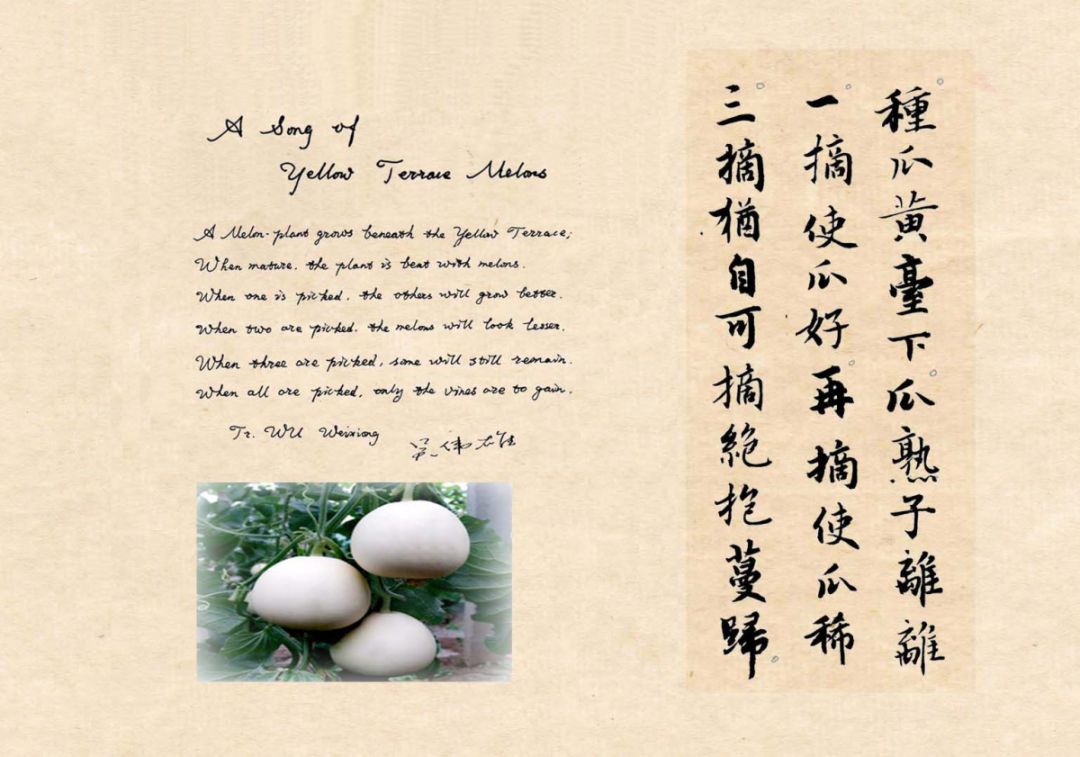 A Song of
Yellow Terrace Melons
A Melon-plant grows beneath the Yellow Terrace;
When mature, the plant is beat with melons.
When one is picked, the others will grow better.
When two are picked, the melons will look lesser.
When three are picked, some will still remain.
When all are picked, only the vines are to gain.
Tr. WU Weixiong
吴伟雄
種瓜黄臺下瓜熟子離離
一摘使瓜好再摘使瓜稀
三摘猶自可摘絕抱蔓歸